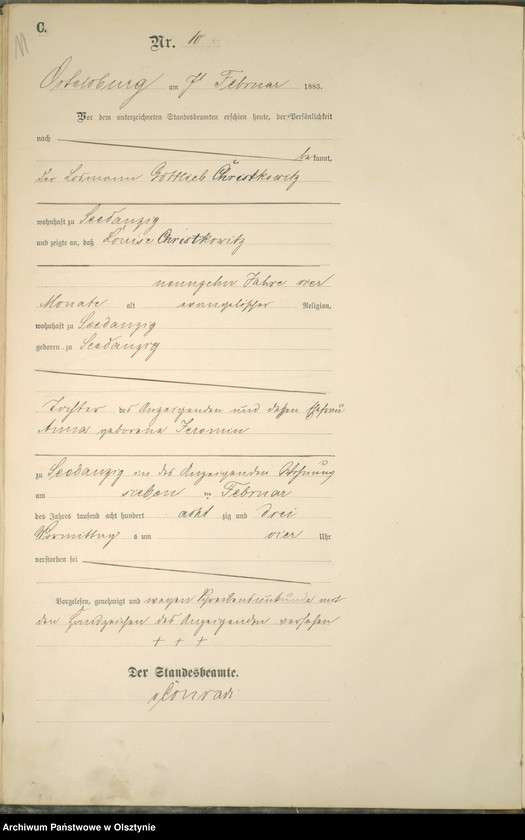 C.
11
Nr. 10
Ortelsburg am 7t Februar 1883.
Vor dem unterzeichneten Standesbeamten erschien heute, der Persönlichkeit
nach
be kannt,
der Losmann Gottlieb Christkowitz
wohnhaft zu Seedanzig
und zeigte an, daß Louise Christkowitz
neunzehn Jahre vier
Monate alt evangelischer Religion,
wohnhaft zu Seedanzig
geboren zu Seedanzig
Tochter des Anzeigenden und dessen Ehefrau
Anna geborene Jeromin
zu Seedanzig in des Anzeigenden Wohnung
am sieben ten Februar
des Jahres tausend acht hundert acht zig und drei
Vormittag s um vier Uhr
verstorben sei
Vorgelesen, genehmigt und wegen Schreibensunkunde mit
den Handzeichen des Anzeigenden versehen
+ + +
Der Standesbeamte.
Conradi
Archiwum Państwowe w Olsztynie